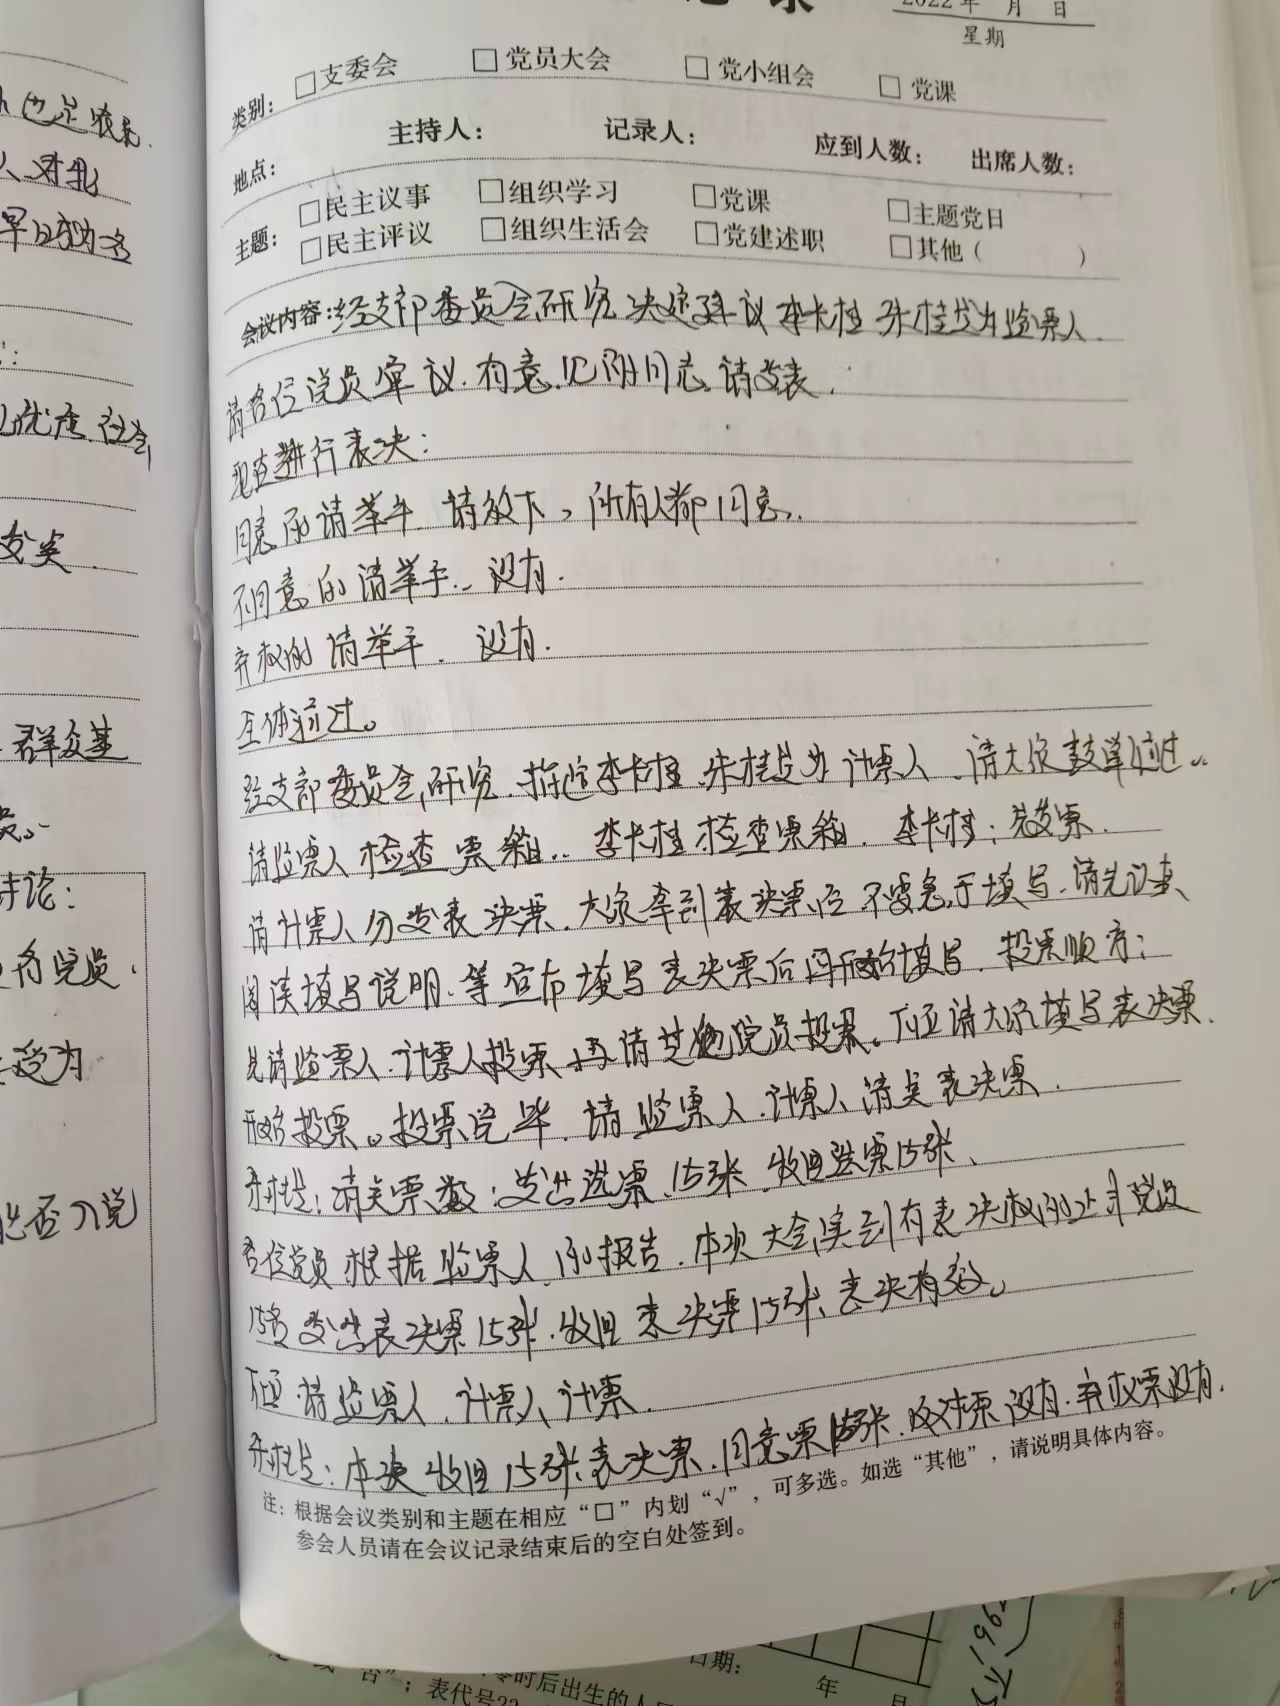 小也是农民
人、对私
优虑 社会
发类.
群众基
讨论:
各党员.
受为
能否入党
记录
2022年 月 日
星期
类别: □支委会 □党员大会 □党小组会 □党课
地点: 主持人: 记录人: 应到人数: 出席人数:
主题: □民主议事 □组织学习 □党课 □主题党日
□民主评议 □组织生活会 □党建述职 □其他( )
会议内容:经支部委员会研究决定建议李长桂 朱桂芝为监票人.
请各位党员审议.有意见的同志请发表.
现在进行表决:
同意的请举手 请放下。所有人都同意.
不同意的请举手. 没有.
弃权的请举手. 没有.
全体通过。
经支部委员会研究.指定李长桂 朱桂芝为计票人.请大家鼓掌通过.
请监票人检查票箱.. 李长桂检查票箱. 李长桂:完毕.
请计票人分发表决票.大家拿到表决票后不要急于填写.请先认真
阅读填写说明.等宣布填写表决票后再开始填写.投票顺序:
先请监票人.计票人投票.再请其他党员投票。下面请大家填写表决票.
开始投票。投票完毕.请监票人.计票人清点表决票.
朱桂芝:清点票数:发出选票15张.收回选票15张、
各位党员根据监票人的报告.本次大会实到有表决权的正式党员
15名 发出表决票15张.收回表决票15张、表决有效。
下面请监票人.计票人计票.
朱桂芝:本次收回15张表决票.同意票15张.反对票没有.弃权票没有.
注: 根据会议类别和主题在相应“□”内划“√”,可多选。如选“其他”,请说明具体内容。
参会人员请在会议记录结束后的空白处签到。
零时后出生的人
日期: 年 月